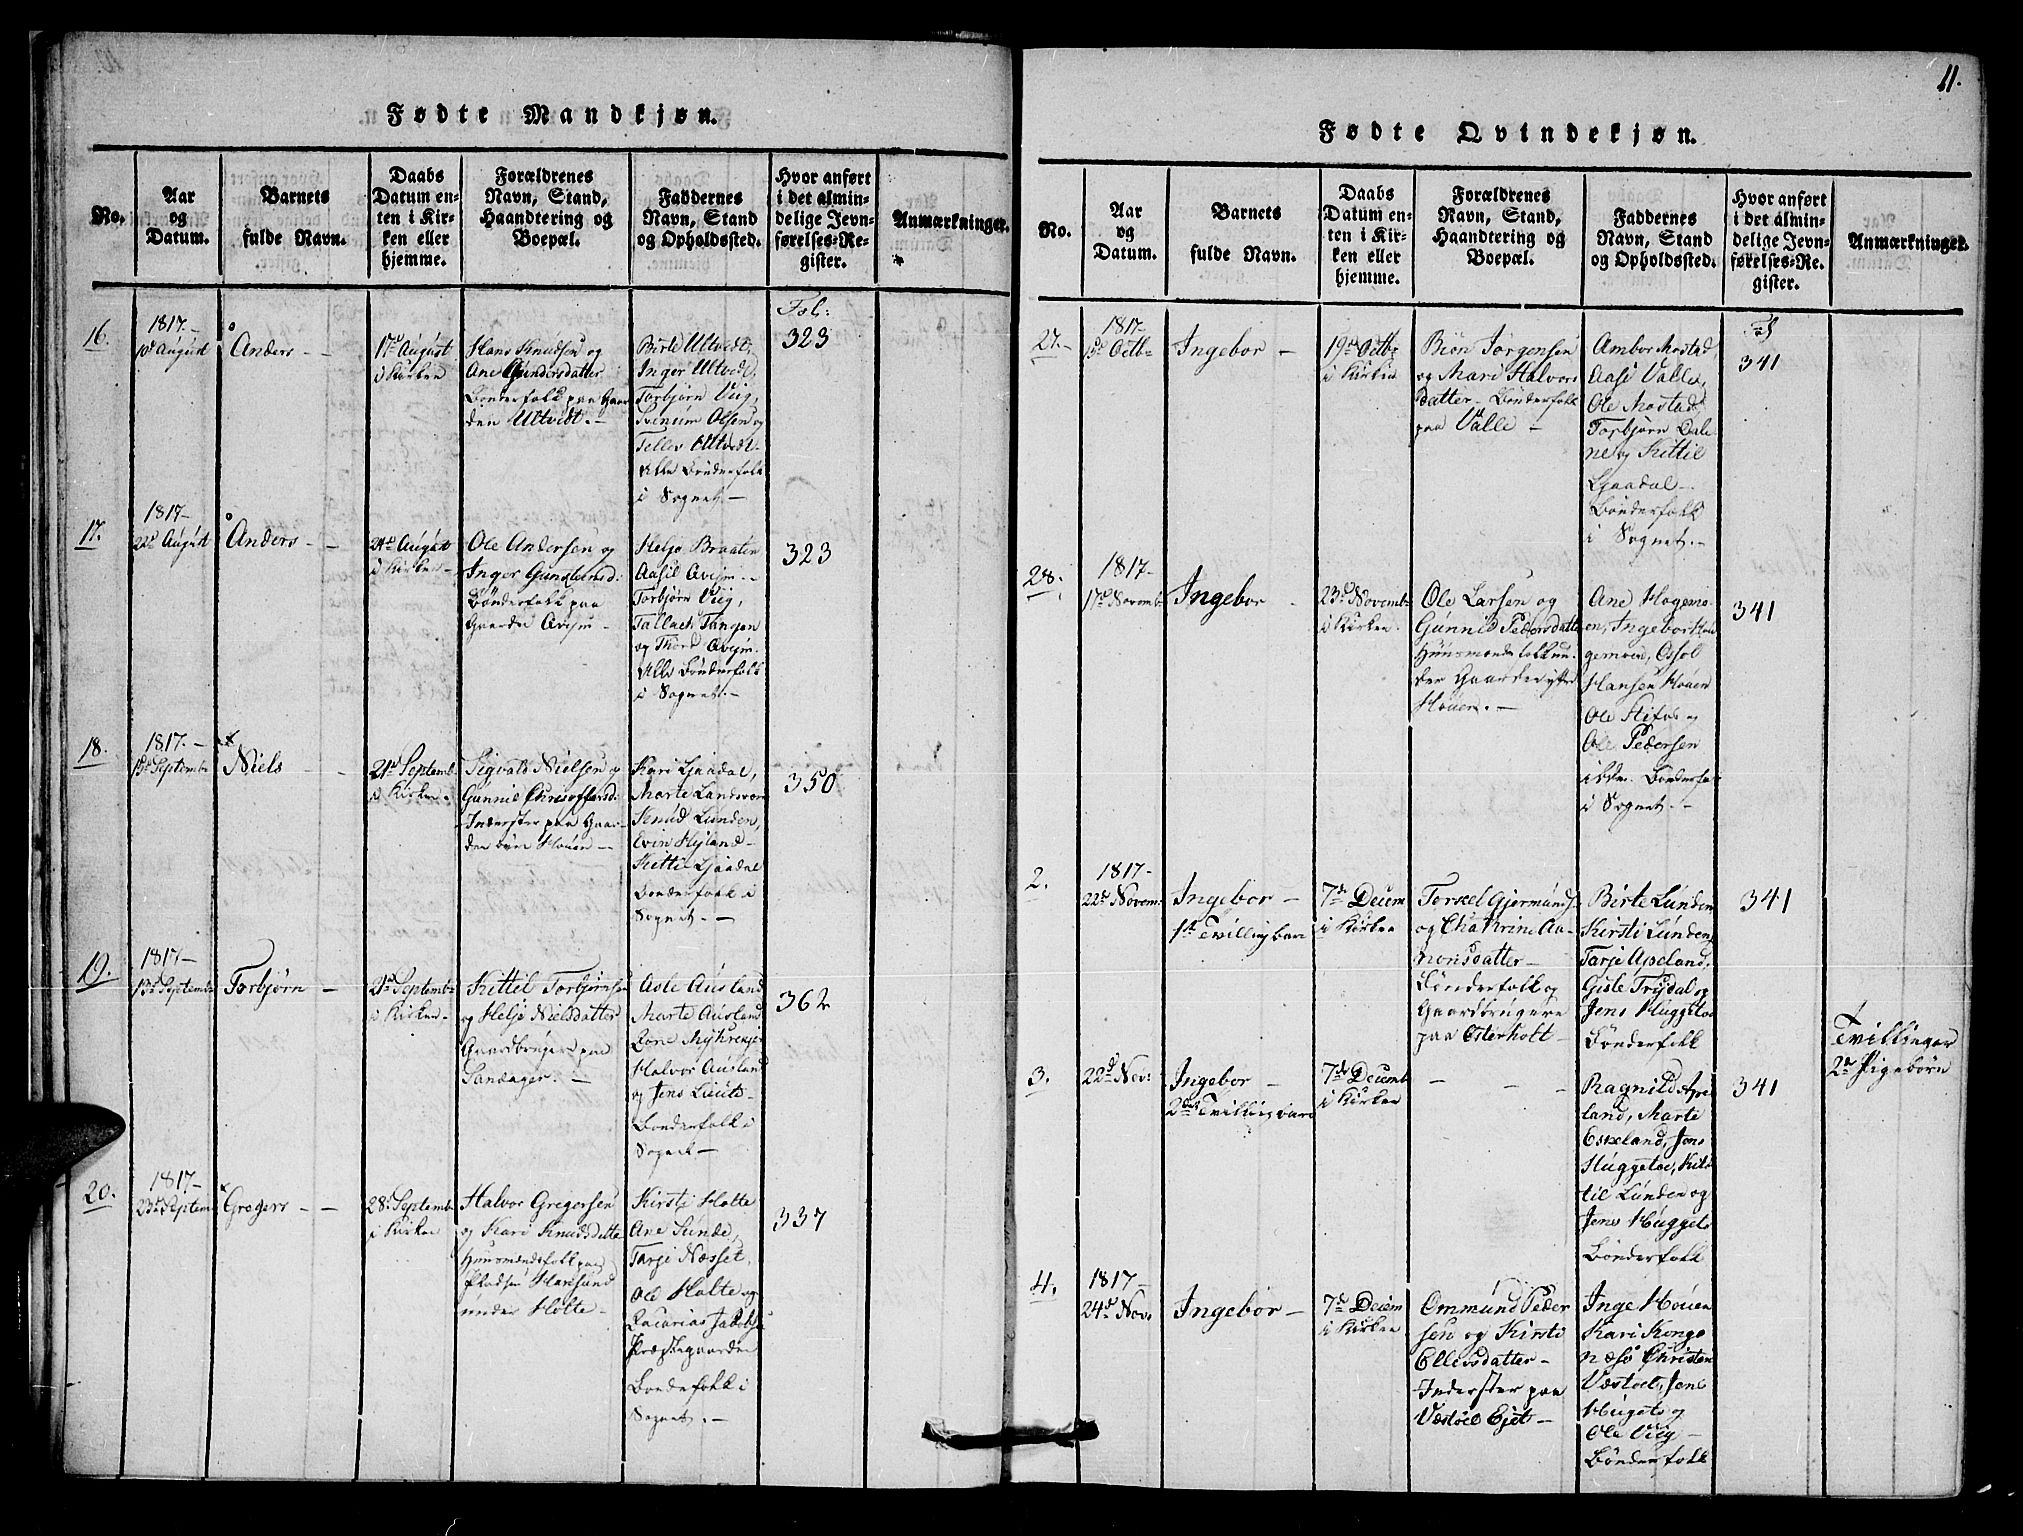 Fødte Mandkjøn.
No.
Aar
og
Datum.
Barnets
fulde Navn.
Daabs
Datum en-
ten i Kir-
ken eller
hjemme.
Forældrenes
Navn, Stand,
Haandtering og
Boepæl.
Faddernes
Navn, Stand
og Opholdssted.
Hvor anført
i det almin-
delige Jevn-
førelses-Re-
gister.
Anmærkninger.
16.
1817.-
10de August
Anders -
17de August
i Kirken
Hans Knudsen og
Ane Gundersdatter
Bønderfolk paa Gaar
den Ultvedt. -
Birte Ultvedt,
Inger Ultvedt,
Torbjørn Viig,
Svenum Olsen og
Tellev Ultvedt.
Alle Bønderfolk
i Sognet. -
Fol:
323
17.
1817-
22de August
Anders - -
24de August
i Kirken -
Ole Andersen og
Inger Gunstensd:
Bønderfolk paa
Gaarden Avejm -
Helje Braaten
Aasil Avejm. -
Torbjørn Viig,
Tallach Tangen
og Thord Avejm.
Alle Bønderfolk
i Sognet. -
323
18.
1817. -
13de Septemb:
Niels - -
21de Septemb:
i Kirken.
Sigvald Nielsen og
Gunnil Christoffersd:
Inderster paa Gaar-
den øvre Houen -
Kari Ljaadal,
Marte Landsverk
Knud Lunden,
Evin Hyland -
Kittil Ljaadal
Bønderfolk i
Sognet. -
350
19.
1817-
13de Septemb:
Torbjørn -
21de Septemb:
i Kirken.
Kittil Torbjørnsen
og Helje Nielsdatter
Gaardbruger paa
Sandager. -
Asle Ausland
Marte Ausland
Halvor Ausland
og Jens
Bønderfolk i
Sognet -
362
20.
1817-
23de Septem:
Gregers - -
28de Septemb:
i Kirken
Halvor Gregersen
og Kari Knudsdatter
Huusmandsfolk paa
Pladsen Haresund
under Holte -
Kirsti Holte
Ane Sunde,
Tarje Næsset,
Ole Holte og
Zacarias Jacobsen
Præstegaarden
Bøndefolk i
Sognet. -
337
11.
Fødte Qvindekjøn.
No.
Aar
og
Datum.
Barnets
fulde Navn.
Daabs
Datum en-
ten i Kir-
ken eller
hjemme.
Forældrenes
Navn, Stand,
Haandtering og
Boepæl.
Faddernes
Navn, Stand
og Opholdssted.
Hvor anført
i det almin-
delige Jevn-
førelses-Re-
gister.
Anmærkninger.
27.-
1817-
Octb:
Ingebor -
19de Octb:
i Kirken
Biøn Jorgensen
og Mari Halvors
datter - Bønderfolk
paa Valle -
Ambor Mostad
Aasi Valle,
Ole Mostad,
Torbjørn Dale-
ne og Kittil
Ljaadal -
Bønderfolk
i Sognet. -
Fol
341
28.
1817-
17de Novemb:
Ingebor -
23de Novemb:
i Kirken.
Ole Larsen og
Gunnild Pedersdatter
Huusmandsfolk un-
der Gaarden ytre
Houen. -
Ane Hagemo-
en, Ingebor Ha-
gemoen, Ossol
Hansen Houen
Ole Hifos og
Ole Pedersen
ibdm. Bønderfolk
i Sognet. -
341
2.
1817-
22de Novem:
Ingebor -
1ste Tvillingbarn
7de Decem
i Kirken
Torkel Gjermunds-
og Chathrine Aa-
nonsdatter -
Bønderfolk og
Gaardbrugere
paa Østerholt -
Birte Lunden
Kirsti Lunden,
Tarje Apeland,
Gisle Trydal og
Jens Huggeto
Bønderfolk
341
Tvillinger
2de Pigebørn
3.
22de Nov:
Ingebor -
2det Tvillingbarn
7de Decemb
i Kirken
- - -
Ragnild Ape-
land, Marte
Eskeland, Jens
Huggetoe, Kit-
til Lunden og
Jens Huggeto
Bønderfolk
341
4.
1817-
24de Nov.
Ingebor -
7de Decem
i Kirken
Ommund Peder
sen og Kirsti
Ellevsdatter -
Inderster paa
Væstøel Ejet -
Inge Houen
Kari Kongs
næs, Christen
Væstøel, Jens
Hugeto og
Ole Viig -
Bønderfolk